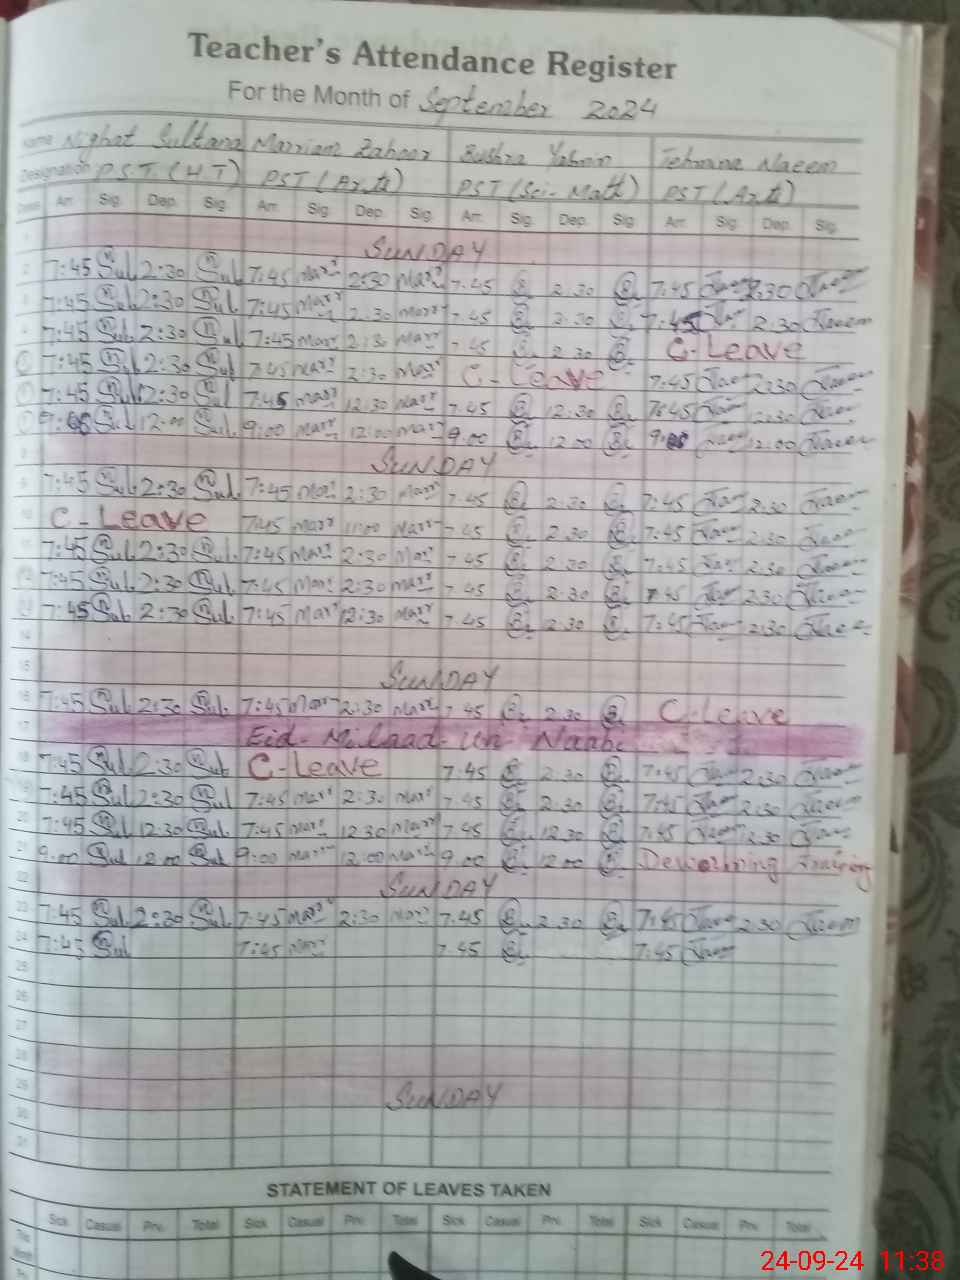 Teacher's Attendance Register
For the Month of September 2024
Name Nighat Sultana Marriam Zahoor Bushra Tehmina Naeem
Designation P.S.T. (H.T) PST (Arts) PST (Sci-Math) PST (Arts)
Dates Arr. Sig. Dep. Sig. Arr. Sig. Dep. Sig. Arr. Sig. Dep. Sig. Arr. Sig. Dep. Sig.
1 SUNDAY
2 7:45 Sul 2:30 Sul 7:45 Marr 2:30 Marr 7.45 B 2.30 B 7:45 2:30
3 7:45 Sul 2:30 Sul 7:45 Marr 2:30 Marr 7.45 B 2.30 B 7:45 2:30 Naeem
4 7:45 Sul 2:30 Sul 7:45 Marr 2:30 Marr 7.45 B 2.30 B C-Leave
5 7:45 Sul 2:30 Sul 7:45 Marr 2:30 Marr C-Leave 7:45 2:30
6 7:45 Sul 12:30 Sul 7:45 Marr 12:30 Marr 7.45 B 12.30 B 7:45
7 Sul 12:00 Sul 9:00 Marr 12:00 Marr 9.00 B 12.00 B 12.00
8 SUNDAY
9 7:45 Sul 2:30 Sul 7:45 Marr 2:30 Marr 7.45 B 2.30 B 7:45 2:30
10 C-Leave 7:45 Marr 11:00 Marr 7.45 B 2.30 B 7:45 2:30
11 7:45 Sul 2:30 Sul 7:45 Marr 2:30 Marr 7.45 B 2.30 B 7:45 2:30
12 7:45 Sul 2:30 Sul 7:45 Marr 2:30 Marr 7.45 B 2.30 B 7:45 2:30
13 7:45 Sul 2:30 Sul 7:45 Marr 12:30 Marr 7.45 B 2.30 B 7:45 2:30
14
15 SUNDAY
16 7:45 Sul 2:30 Sul 7:45 Marr 2:30 Marr 7.45 B 2.30 B C-Leave
17 Eid-Milaad-Un Nabi
18 7:45 Sul 2:30 Sul C-Leave 7:45 B 2:30 B 7:45 2:30
19 7:45 Sul 2:30 Sul 7:45 Marr 2:30 Marr 7:45 B 2:30 B 7:45 2:30
20 7:45 Sul 12:30 Sul 7:45 Marr 12:30 Marr 7.45 B 12.30 B 7:45
21 9:00 Sul 12:00 Sul 9:00 Marr 12:00 Marr 9.00 B 12.00 B Deworming Training
22 SUNDAY
23 7:45 Sul 2:30 Sul 7:45 Marr 2:30 Marr 7.45 B 2.30 B 7:45 2:30
24 7:45 Sul 7:45 Marr 7.45 B 7:45
25
26
27
28
29 SUNDAY
30
31
STATEMENT OF LEAVES TAKEN
Sick Casual Priv. Total Sick Casual Priv. Total Sick Casual Priv. Total Sick Casual Priv. Total
This
Month
24-09-24 11:38